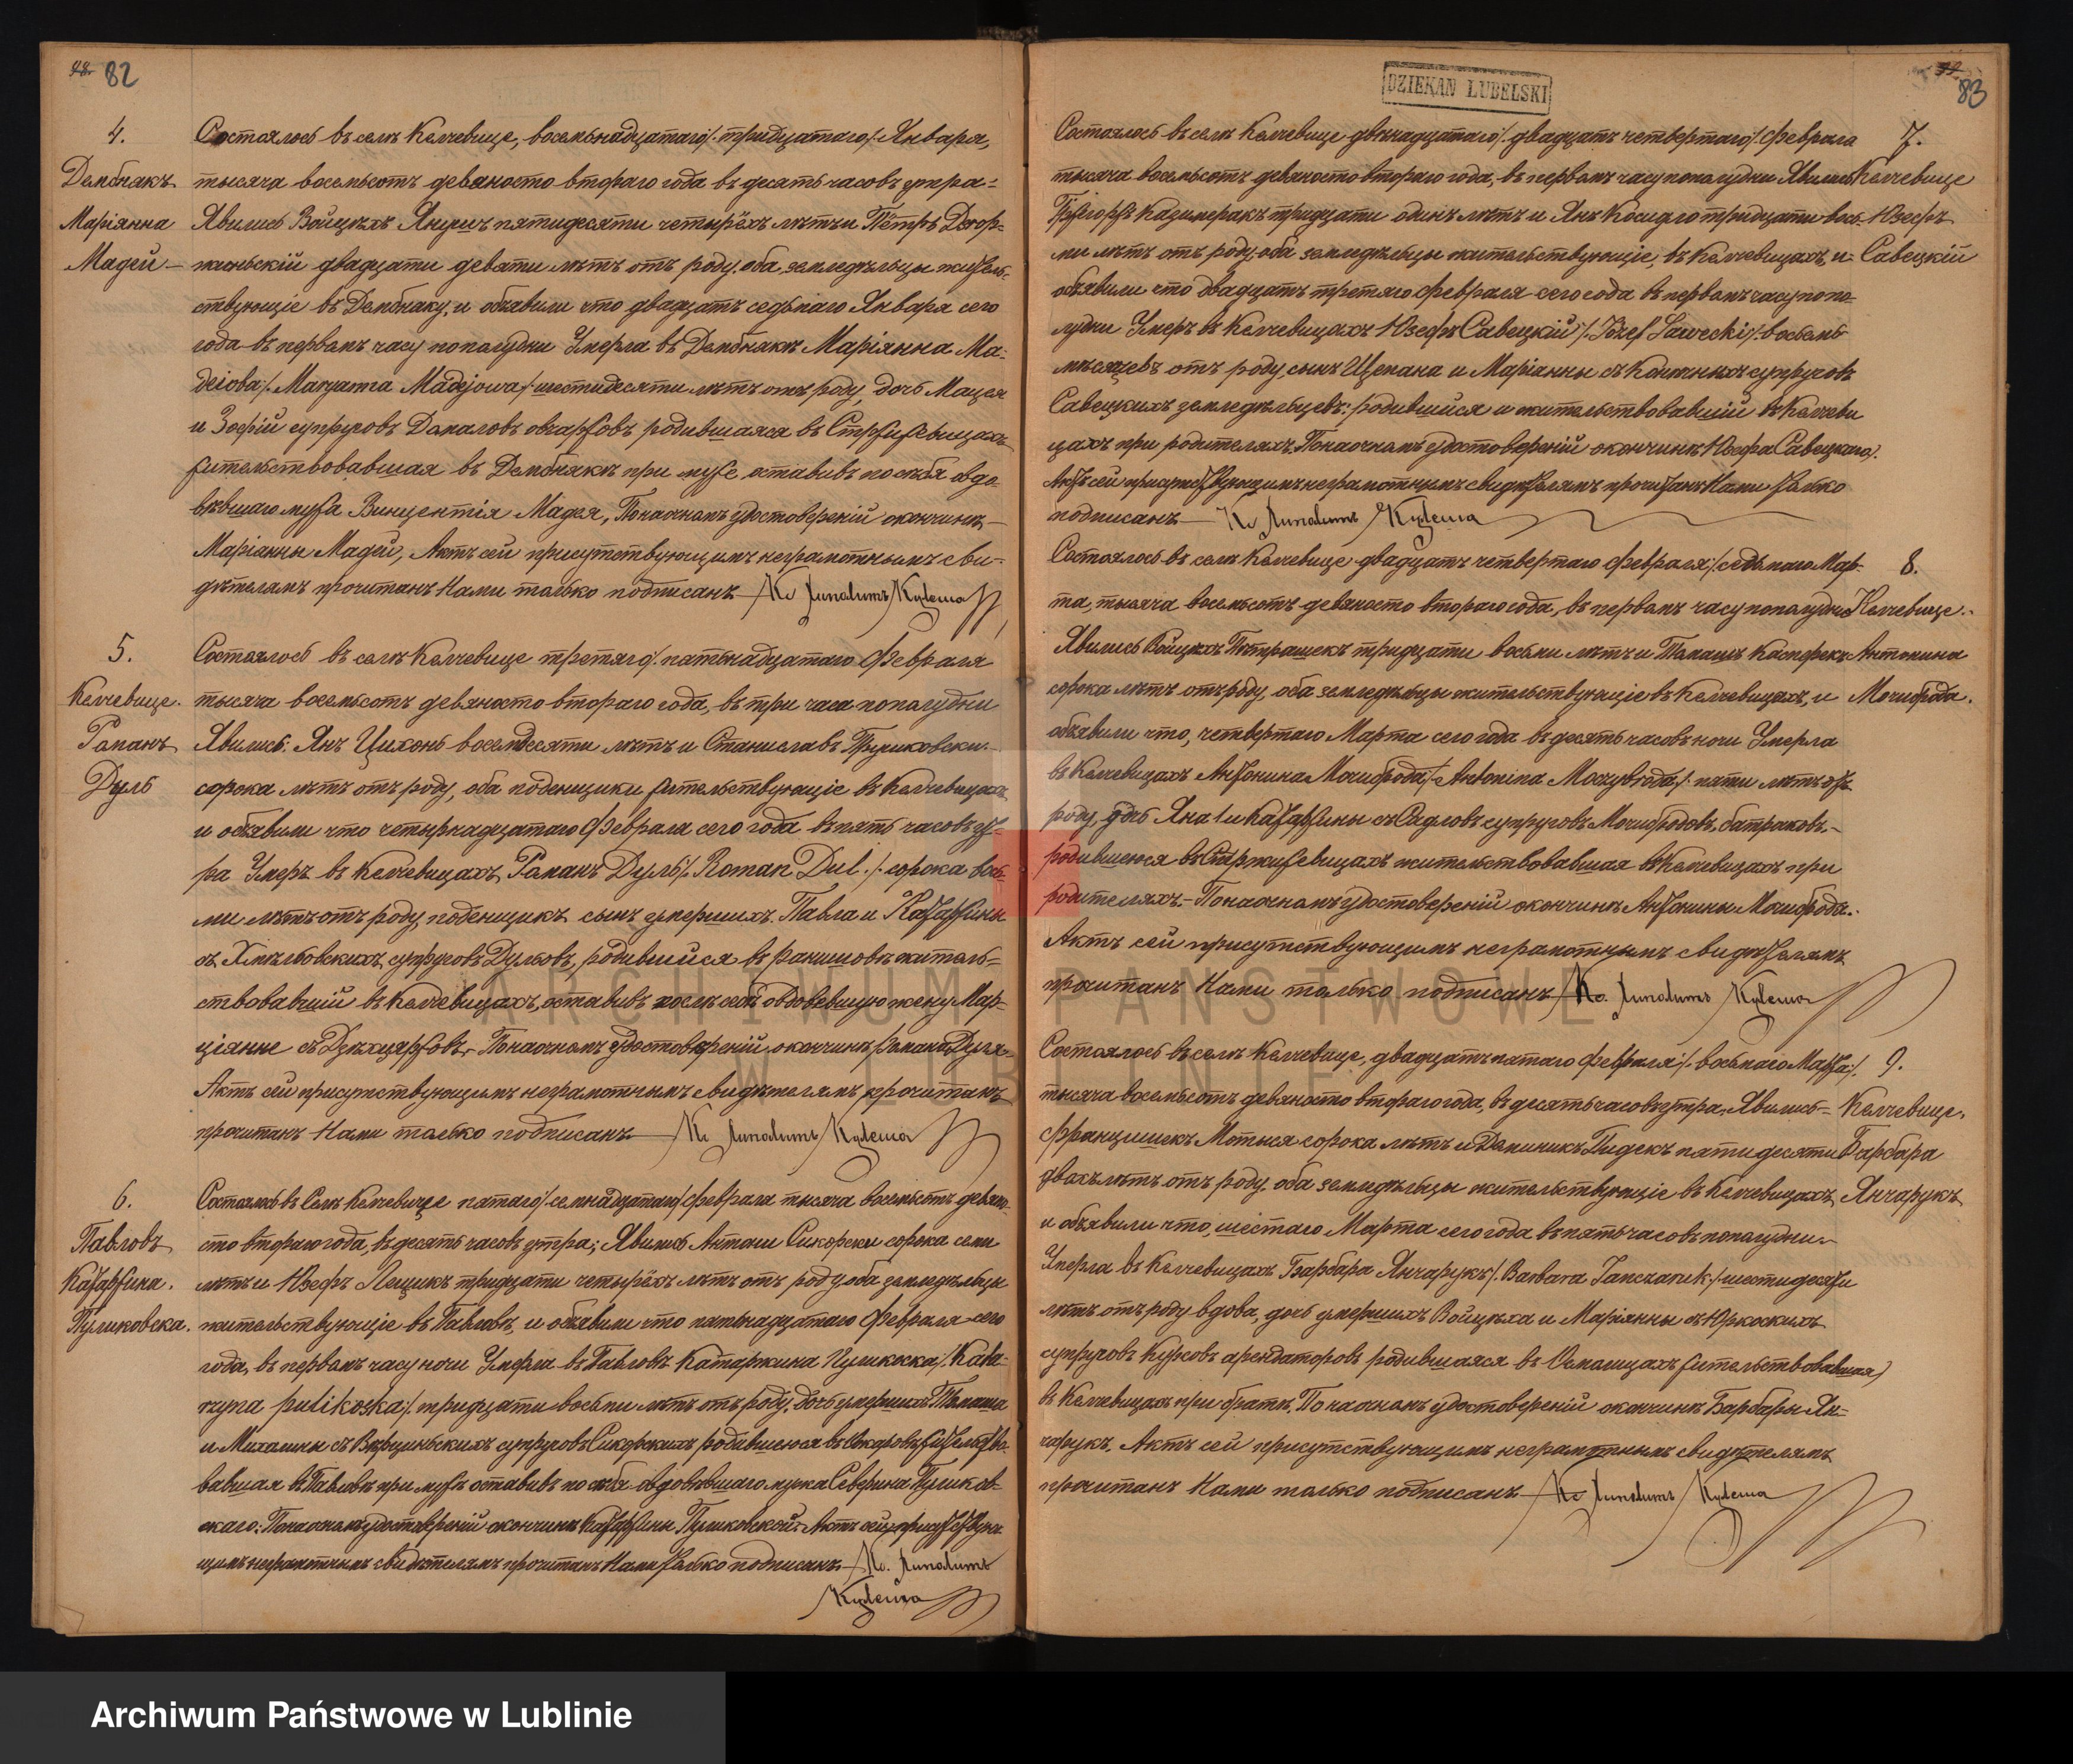 48. 82
4.
Дембнякъ
Маріянна
Мадей
Состоялось въ селѣ Келчевице, восемьнадцатаго /: тридцатаго :/ Января,
тысяча восемьсотъ девяносто втораго года въ десять часовъ утра =
Явились Войцѣхъ Янушъ пятидесяти четырёхъ лѣтъ и Пётръ
двадцати девяти лѣтъ отъ роду, оба земледѣльцы житель-
ствующіе въ Дембнаку, и объявили что двадцать седьмаго Января сего
года въ первомъ часу пополудни Умерла въ Дембнякѣ Маріянна Ма-
деіова /: Maryanna Madejowa :/ шестидесяти лѣтъ отъ роду, дочь Мацея
и Зофіи супруговъ родившаяся въ
жительствовавшая въ Дембнякѣ при мужѣ, оставивъ по себя овдо-
вѣвшаго мужа Винцентія Мадея, Понаочномъ удостовѣреній окончинѣ
Маріанны Мадей, Актъ сей присутствующимъ неграмотнымъ сви-
дѣтелямъ прочитанъ Нами только подписанъ Кс Кулеша
5.
Келчевице.
Романъ
Дуль
Состоялось въ селѣ Келчевице третяго /: пятьнадцатаго Февраля
тысяча восемьсотъ девяносто втораго года, въ три часа пополудни
Явились: Янъ Цихонь восемдесяти лѣтъ и Станиславъ
сорока лѣтъ отъ роду, оба поденщики жительствующіе въ Келчевицахъ
и объявили что четырнадцатаго Февраля сего года въ пять часовъ ут-
ра Умеръ въ Келчевицахъ Романъ Дуль /: Roman Dul :/ сорока вось-
ми лѣтъ отъ роду, поденщикъ сынъ умершихъ Павла и Катаржины
съ супруговъ Дульовъ, родившійся въ житель-
ствовавшій въ Келчевицахъ, оставивъ послѣ себѣ овдовевшую жену Мар-
ціянне съ Понаочномъ удостовѣреній окончинѣ Романа Дуля
Актъ сей присутствующимъ неграмотнымъ свидѣтелямъ прочитанъ
прочитанъ Нами только подписанъ Кс Кулеша
6.
Павловъ
Катаржина.
Пуликовска.
Состоялось въ Селѣ Келчевице пятаго /: семнадцатаго :/ Февраля тысяча восемьсотъ девяно-
сто втораго года, въ десять часовъ утра; Явились Антони Сикорски сорока семи
лѣтъ и Юзефъ Лещикъ тридцати четырёхъ лѣтъ отъ роду оба земледѣльцы
жительствующіе въ Павловѣ, и объявили что пятьнадцатаго Февраля сего
года, въ первомъ часу ночи Умерла въ Павловѣ Катаржина /: Kata-
rzyna pulikoska :/ тридцати восьми лѣтъ отъ роду, дочь умершихъ Томаша
и съ супруговъ Сикорскихъ родившеюся въ жительство-
вавшая въ Павловѣ при мужѣ оставивъ по себя овдовѣвшаго мужа Северина Пуликов-
скаго: Понаочномъ удостовѣреній окончинѣ Катаржины Пуликовской Актъ сей присутствую-
щимъ неграмотнымъ свидѣтелямъ прочитанъ Нами только подписанъ Кс.
Кулеша
DZIEKAN LUBELSKI
83
7.
Келчевице
Юзефъ
Савецкій
Состоялось въ селѣ Келчевице двѣнадцатаго /: двадцать четвертаго :/ Февраля
тысяча восемьсотъ девяносто втораго года, въ первомъ часу пополудни Явились
Гржегоржъ Казимеракъ тридцати одинъ лѣтъ и Янъ тридцати вось-
ми лѣтъ отъ роду, оба земледѣльцы жительствующіе, въ Келчевицахъ, и
объявили что двадцать третяго Февраля сего года въ первомъ часу попо-
лудни Умеръ въ Келчевицахъ Юзефъ Савецкій /: Józef Sawecki :/ восемь
мѣсяцевъ отъ роду, сынъ Щепана и Маріанны съ супруговъ
Савецкихъ земледѣльцевъ: родившійся и жительствовавшій въ Келчеви
цахъ при родителяхъ. Понаочномъ удостовѣреній окончинѣ Юзефа Савецкаго.
Актъ сей присутствующимъ неграмотнымъ свидѣтелямъ прочитанъ Нами только
подписанъ Кс Кулеша
8.
Келчевице.
Антонина
Мочиброда.
Состоялось въ селѣ Келчевице двадцать четвертаго Февраля /: седьмаго Мар-
та, тысяча восемьсотъ девяносто втораго года, въ первомъ часу пополудни
Явились Войцѣхъ Пѣтрашекъ тридцати восьми лѣтъ и Томашъ Касперекъ
сорока лѣтъ отъ роду, оба земледѣльцы жительствующіе въ Келчевицахъ, и
объявили что, четвертаго Марта сего года въ десять часовъ ночи Умерла
въ Келчевицахъ Антонина Мочиброда /: Antonina :/ пяти лѣтъ отъ
роду, дочь Яна и Катаржины съ супруговъ Мочибродовъ, батраковъ,
родившеюся въ жительствовавшая въ Келчевицахъ при
родителяхъ. Понаочномъ удостовѣреній окончинѣ Антонины Мочиброда.
Актъ сей присутствующимъ неграмотнымъ свидѣтелямъ
прочитанъ Нами только подписанъ Кс. Кулеша
9.
Келчевице.
Барбара
Янчарукъ
Состоялось въ селѣ Келчевице, двадцать пятаго Февраля /: восьмаго Марта :/
тысяча восемьсотъ девяносто втораго года, въ десять часовъ утра, Явились
Францишекъ Мотыся сорока лѣтъ и Доминикъ Пидекъ пятидесяти
двохъ лѣтъ отъ роду, оба земледѣльцы жительствующіе въ Келчевицахъ,
и объявили что, шестаго Марта сего года въ пять часовъ пополудни
Умерла въ Келчевицахъ Барбара Янчарукъ /: Barbara Janczaruk :/ шестидесяти
лѣтъ отъ роду вдова, дочь умершихъ Войцѣха и Маріянны съ
супруговъ арендаторовъ родившаяся въ жительствовавшая
въ Келчевицахъ при братѣ. Понаочномъ удостовѣреній окончинѣ Барбары Ян-
чарукъ, Актъ сей присутствующимъ неграмотнымъ свидѣтелямъ
прочитанъ Нами только подписанъ Кс Кулеша
ARCHIWUM PAŃSTWOWE
W LUBLINIE
Archiwum Państwowe w Lublinie